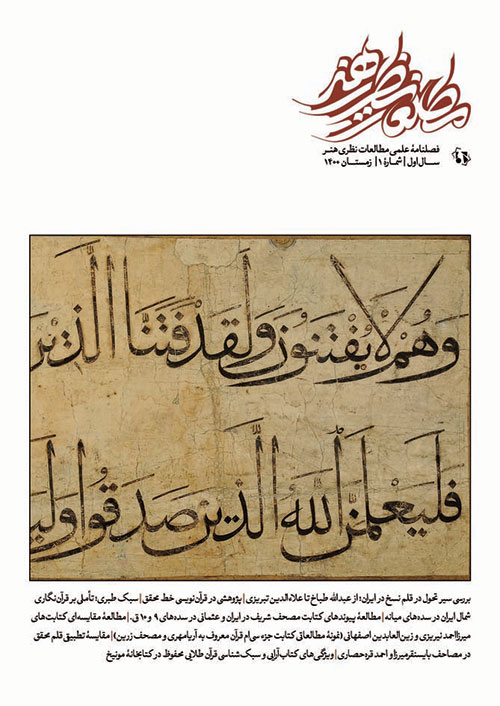 مطالعات نظری هنر
فصلنامهٔ علمی مطالعات نظری هنر
سال اول | شمارهٔ ۱ | زمستان ۱۴۰۰
وَهُمْ لَا يُفْتَنُونَ وَلَقَدْ فَتَنَّا الَّذِينَ
فَلَيَعْلَمَنَّ اللَّهُ الَّذِينَ صَدَقُوا وَلَيَ
بررسی سیر تحول در قلم نسخ در ایران؛ از عبدالله طباخ تا علاءالدین تبریزی | پژوهشی در قرآن‌نویسی خط محقق | سبک طبری؛ تأملی بر قرآن‌نگاری
شمال ایران در سده‌های میانه | مطالعهٔ پیوندهای کتابت مصحف شریف در ایران و عثمانی در سده‌های ۹ و ۱۰ق. | مطالعهٔ مقایسه‌ای کتابت‌های
میرزا احمد نیریزی و زین‌العابدین اصفهانی (نمونهٔ مطالعاتی کتابت جزء سی‌ام قرآن معروف به آریامهری و مصحف زرین) | مقایسهٔ تطبیقی قلم محقق
در مصاحف بایسنقرمیرزا و احمد قره‌حصاری | ویژگی‌های کتاب‌آرایی و سبک‌شناسی قرآن طلایی محفوظ در کتابخانهٔ مونیخ